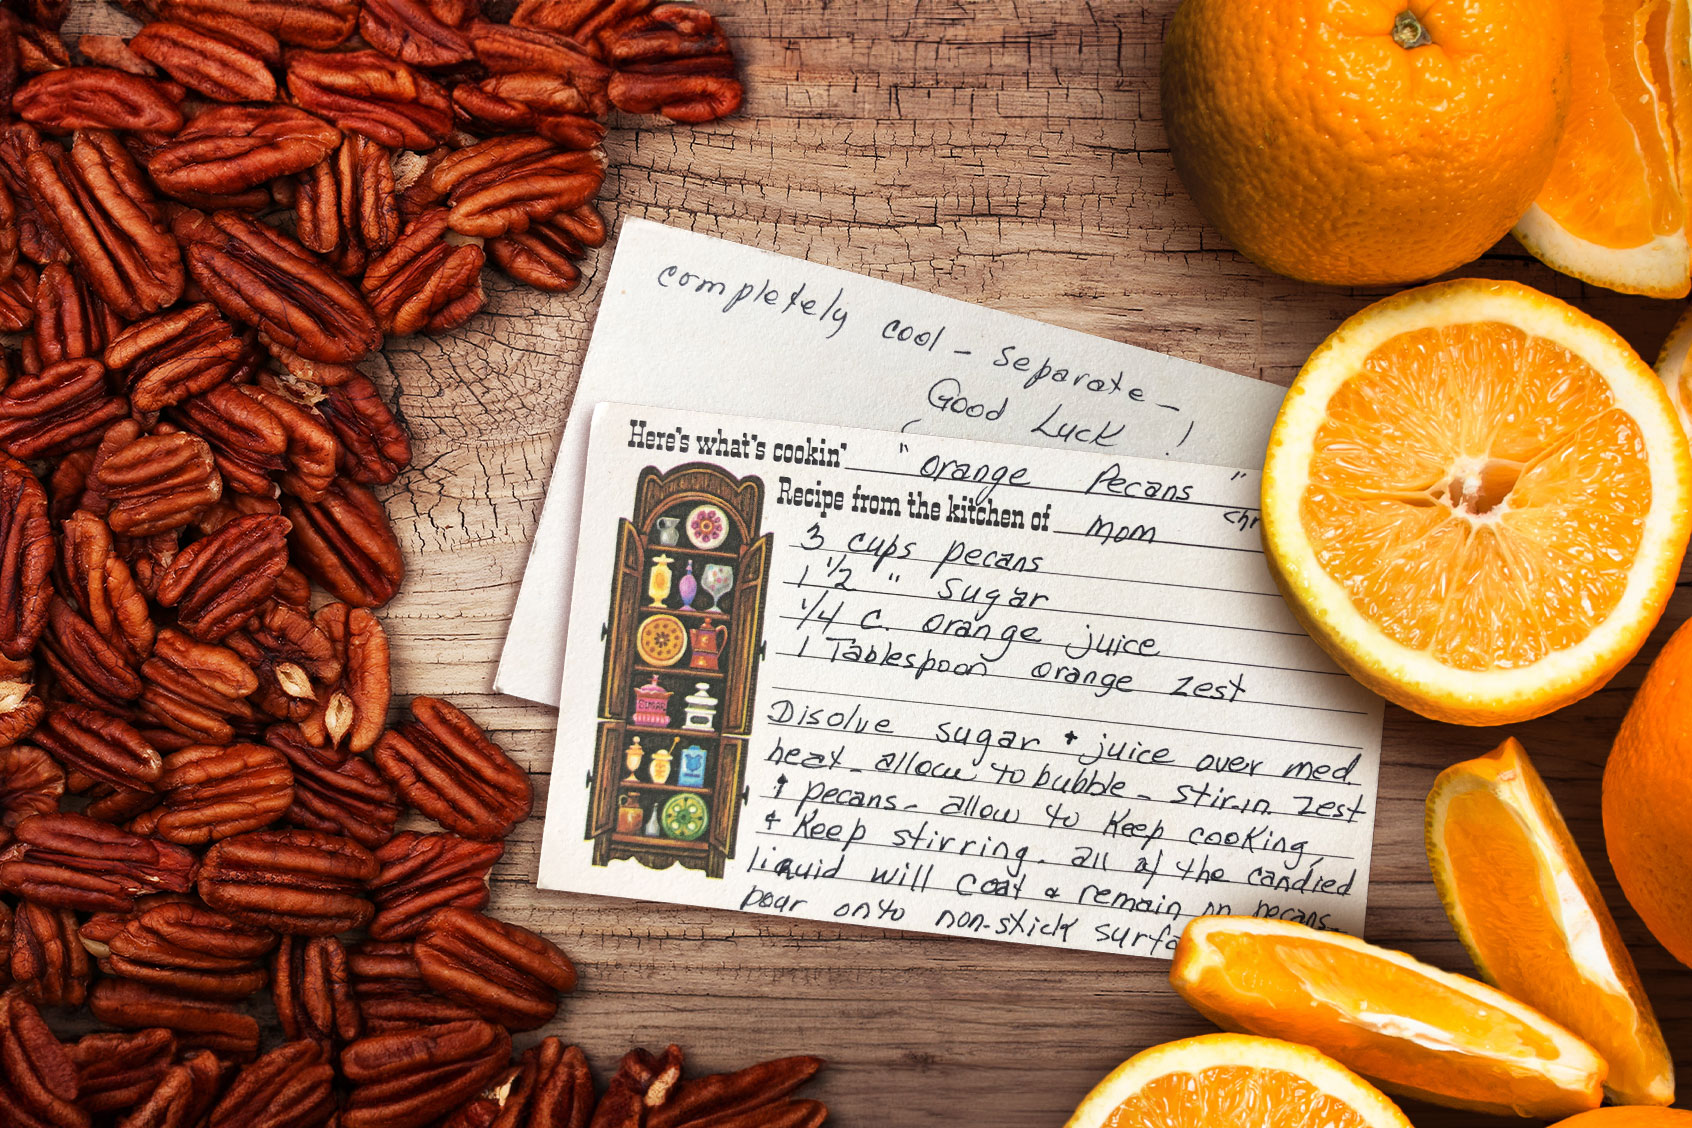 completely cool - separate -
Good Luck !
Here's what's cookin' "Orange Pecans"
Recipe from the kitchen of Mom
3 cups pecans
1 1/2 " Sugar
1/4 c. orange juice
1 Tablespoon orange zest
Disolve sugar + juice over med.
heat - allow to bubble - stir in zest
& pecans - allow to keep cooking,
& keep stirring. all of the candied
liquid will coat & remain on pecans -
pour onto non-stick
SUGAR